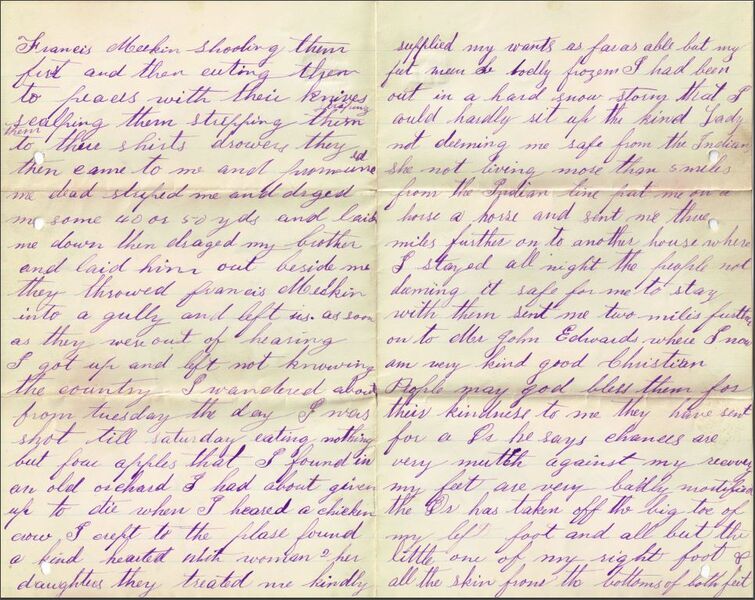 Francis Meekin shooting them
fist and then cuting them
to peaces with their knives
scalping them stripping them
them to their shirts drowers they
then came to me and pronounced
me dead striped me and draged
me some 40 or 50 yds and laid
me down then draged my brother
and laid him out beside me
they throwed francis Meekin
into a gully and left us. as soon
as they were out of hearing
I got up and left not knowing
the country I wandered about
from tuesday the day I was
shot till saturday eating nothing
but four apples that I found in
an old orchard I had about given
up to die when I heared a chicken
crow, I crept to the plase found
a kind hearted woman & her
daughters they treated me kindly
supplied my wants as far as able but my
feet were so badly frozen I had been
out in a hard snow storm that I
could hardly set up the kind Lady
not deeming me safe from the Indians
she not living more than 5 miles
from the Indian line put me on a
horse a horse and sent me three
miles further on to another house where
I stayed all night the people not
deeming it safe for me to stay
with them sent me two miles further
on to Mr John Edwards where I now
am very kind good Christian
People may god bless them for
their kindness to me they have sent
for a Dr he says chances are
very mutch against my recovery
my feet are very badly mortified
the Dr has taken off the big toe of
my left foot and all but the
little one of my right foot &
all the skin from the bottoms of both feet